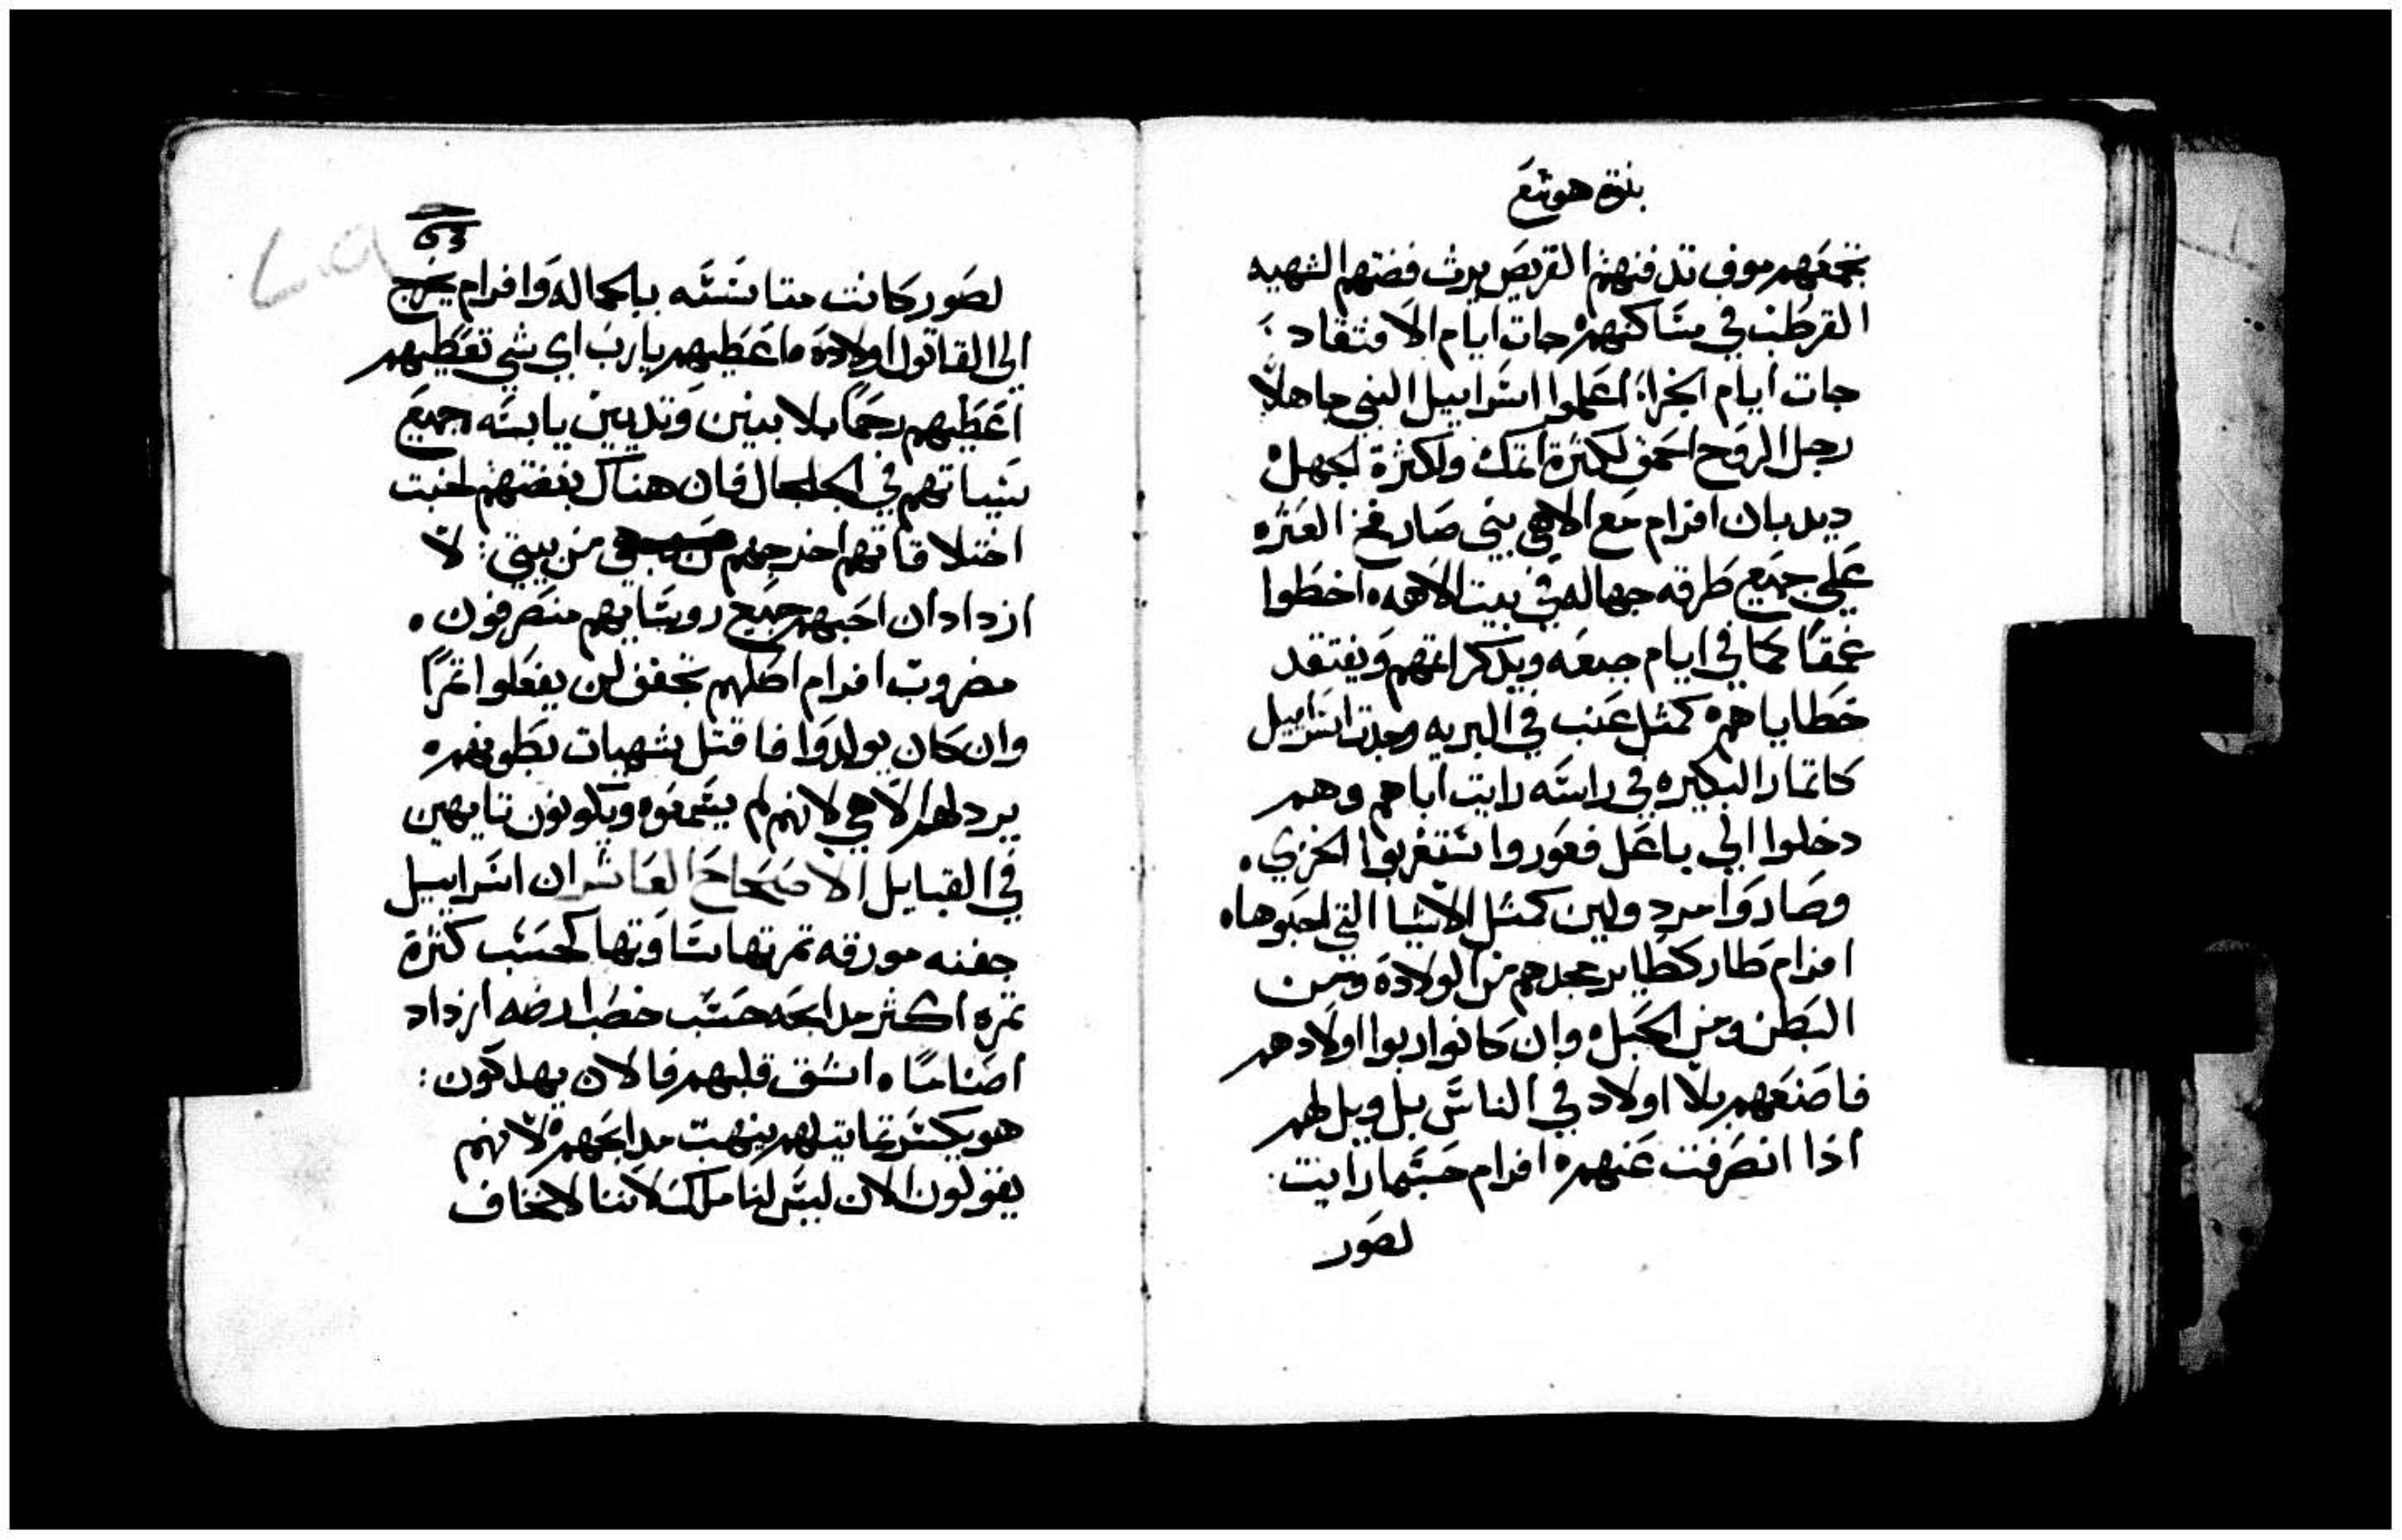 نبوة هوشع
تجمعهم موف تدفنهم القريص يرث فضتهم الشهيه
القرطب في مساكنهم جات ايام الافتقاد
جات ايام الجزاء اعلموا اسراييل النبي جاهلًا
رجل الروح احمق لكثرة اثمك ولكثرة الجهل
ديدبان افرام مع الاهي نبي صار فخ العثره
علي جميع طرقه جهاله في بيت الاهه اخطوا
عمقا كما في ايام جبعه ويذكر اثمهم ويفتقد
خطاياهم كمثل عنب في البريه وجدت اسراييل
كاتمار البكيره في راسه رايت اباهم وهم
دخلوا الي باعل فعور واستغربوا الخزي
وصاروا مردولين كمثل الاشيا التي احبوها
افرام طار كطاير مجدهم من الولادة ومن
البطن ومن الحبل وان كانوا ربوا اولادهم
فاصنعهم بلا اولاد في الناس بل ويل لهم
اذا انصرفت عنهم افرام حسبما رايت
لصور
لصور كانت متاسسه بالجماله وافرام يخرج
الي القاتول اولاده ما عطيهم يارب اي شي تعطيهم
اعطيهم رحمًا بلا بنين وتديين يابسه جميع
سياتهم في الجلجال فان هناك بغضتهم لخبت
اختلاقاتهم اخرجهم من بيتي لا
ازداد ان احبهم جميع روسايهم منصرفون
مضروب افرام اصلهم تجفف لن يفعلوا تمرًا
وان كان يولدوا فاقتل شهيات بطونهم
يردلهم الاهي لانهم لم يسمعوه ويكونون تايهين
في القبايل الاصحاح العاشر ان اسراييل
جفنه مورقه تمرتها ساوتها كحسب كثرة
تمره اكثر مدابحه حسب خصب ارضه ازداد
اصنامًا انشق قلبهم فالان يهلكون
هو يكسر تماتيلهم ينهب مدابحهم لانهم
يقولون الان ليس لنا ملك لاننا لا نخاف